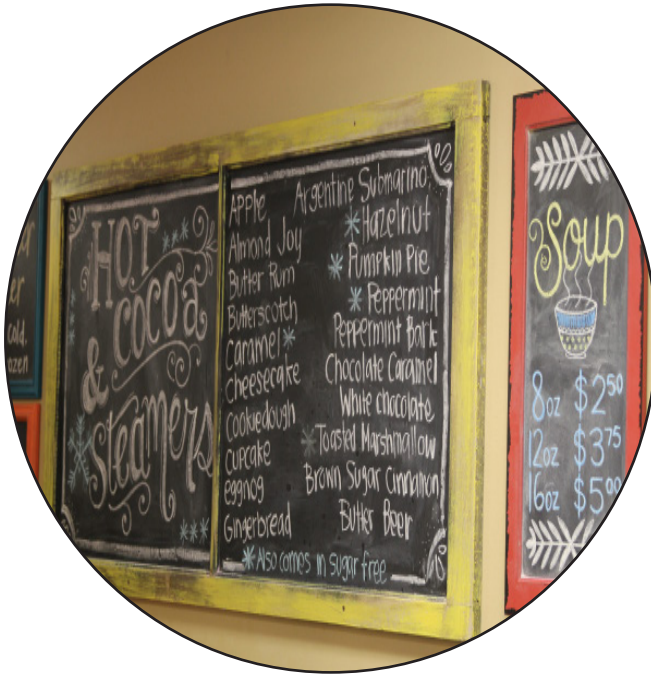 er
er
cold.
ozen
HOT
cocoa
&
steamers
Apple
Almond Joy
Butter Rum
Butterscotch
Caramel*
Cheesecake
Cookiedough
Cupcake
eggnog
Gingerbread
Argentine Submarino
*Hazelnut
*Pumpkin Pie
*Peppermint
Peppermint Bark
Chocolate Caramel
White chocolate
*Toasted Marshmallow
Brown Sugar Cinnamon
Butter Beer
*Also comes in sugar free
Soup
8oz $2.50
12oz $3.75
16oz $5.00